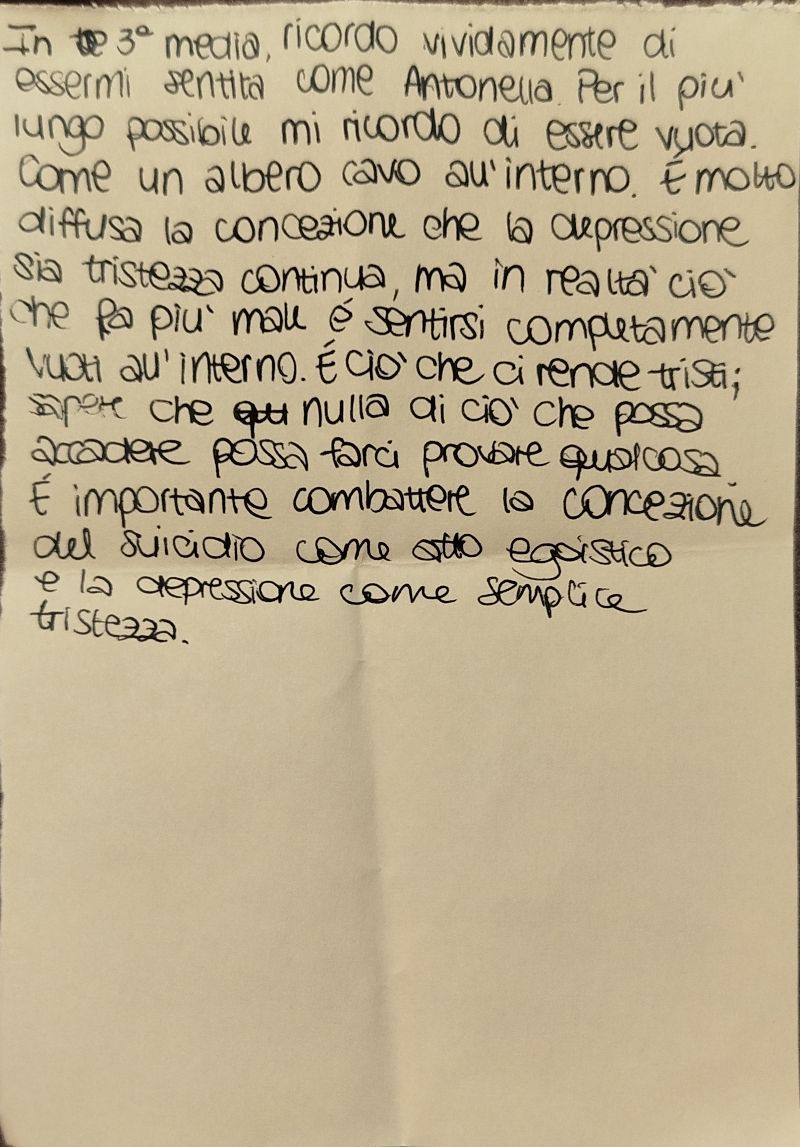 In 3ª media, ricordo vividamente di
essermi sentita come Antonella. Per il piu'
lungo possibile mi ricordo di essere vuota.
Come un albero cavo all'interno. É molto
diffusa la concezione che la depressione
sia tristezza continua, ma in realta' cio'
che fa piu' male é sentirsi completamente
vuoti all'interno. É cio' che ci rende tristi;
sapere che nulla di cio' che possa
accadere possa farci provare qualcosa.
É importante combattere la concezione
del suicidio come atto egoistico
e la depressione come semplice
tristezza.